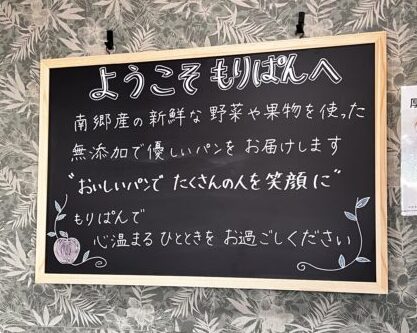 ようこそ もりぱんへ
南郷産の新鮮な野菜や果物を使った
無添加で優しいパンを お届けします
"おいしいパンで たくさんの人を笑顔に"
もりぱんで
心温まる ひとときを お過ごしください
厚